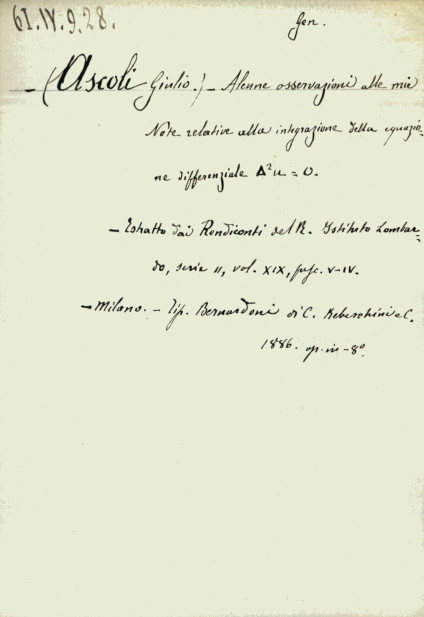 61.IV.9.28.
Gen.
— (Ascoli Giulio.) — Alcune osservazioni alle mie
Note relative alla integrazione della equazio-
ne differenziale Δ²u = 0.
— Estratto dai Rendiconti del R. Istituto Lombar-
do, serie II, vol. XIX, fasc. V-IV.
— Milano. — Tip. Bernardoni di C. Rebeschini e C.
1886. op. in-8º.